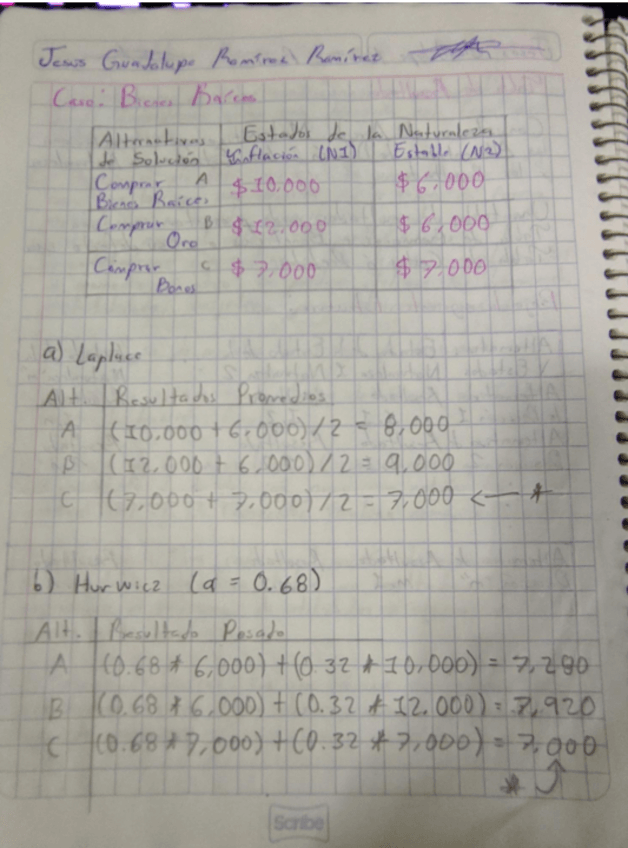 Jesus Guadalupe Ramírez Ramírez
Caso: Bienes Raíces
Alternativas de Solución | Estados de la Naturaleza
Inflación (N1) | Estable (N2)
Comprar Bienes Raíces A | $10.000 | $6.000
Comprar Oro B | $12.000 | $6,000
Comprar Bonos C | $7.000 | $7.000
a) Laplace
Alt. | Resultados Promedios
A | (10.000 + 6,000)/2 = 8,000
B | (12.000 + 6,000)/2 = 9,000
C | (7,000 + 7,000)/2 = 7,000 <— *
b) Hurwicz (a = 0.68)
Alt. | Resultado Pesado
A | (0.68 * 6,000) + (0.32 * 10,000) = 7,280
B | (0.68 * 6,000) + (0.32 * 12.000) = 7,920
C | (0.68 * 7,000) + (0.32 * 7,000) = 7,000
*
Scribe